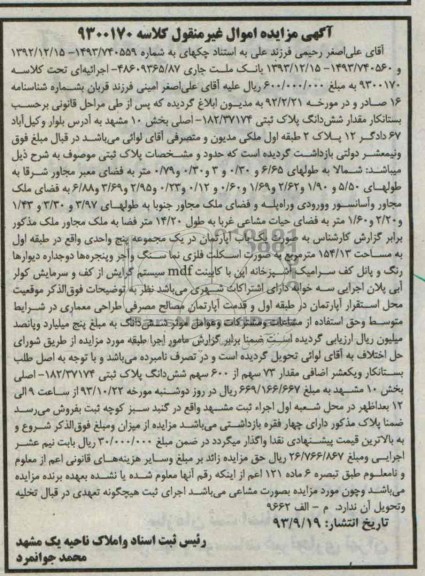 آگهی مزایده اموال غیرمنقول کلاسه ۹۳۰۰۱۷۰
آقای علی‌اصغر رحیمی فرزند علی به استناد چکهای به شماره ۱۴۹۳/۷۴۰۵۵۹- ۱۳۹۲/۱۲/۱۵
و ۱۴۹۳/۷۴۰۵۶۰- ۱۳۹۳/۱۲/۱۵ بانک ملت جاری ۴۸۶۰۹۳۶۵/۸۷- اجرائیه‌ای تحت کلاسه
۹۳۰۰۱۷۰ به مبلغ ۶۰۰/۰۰۰/۰۰۰ ریال علیه آقای علی‌اصغر امینی فرزند قربان بشماره شناسنامه
۱۶ صادر و در مورخه ۹۲/۲/۲۱ به مدیون ابلاغ گردیده که پس از طی مراحل قانونی برحسب
بستانکار مقدار شش‌دانگ پلاک ثبتی ۱۸۲/۳۷۱۷۴- اصلی بخش ۱۰ مشهد به آدرس بلوار وکیل‌آباد
۶۷ دادگر ۱۲ پلاک ۲ طبقه اول ملکی مدیون و متصرفی آقای لوائی می‌باشد در قبال مبلغ فوق
ونیمعشر دولتی بازداشت گردیده است که حدود و مشخصات پلاک ثبتی موصوف به شرح ذیل
میباشد: شمالا به طولهای ۶/۶۵ و ۰/۳۰ و ۳ و ۰/۳۰ و ۰/۷۹ متر به فضای معبر مجاور شرقا به
طولهای ۵/۵۰ و ۱/۹۰ و ۲/۶۲ و ۱/۶۹ و ۰/۶۰ و ۰/۱۲ و ۰/۲۳ و ۲/۹۵ و ۳/۶۹ و ۶/۸۸ به فضای ملک
مجاور وآسانسور وورودی وراه‌پله و فضای ملک مجاور جنوبا به طولهای ۳/۹۷ و ۳/۳۰ و ۱/۴۳
و ۲/۲۰ و ۱/۶۰ متر به فضای حیات مشاعی غربا به طول ۱۴/۲۰ متر فضا به ملک مجاور ملک مذکور
برابر گزارش کارشناس به صورت یکباب آپارتمان در یک مجموعه پنج واحدی واقع در طبقه اول
به مساحت ۱۵۴/۱۳ مترمربع به صورت اسکلت فلزی نما سنگ وآجر وپنجره‌ها دوجداره دیوارها
رنگ و پانل کف سرامیک آشپزخانه اپن با کابینت mdf سیستم گرایش از کف و سرمایش کولر
آبی پلان اجرایی سه خوابه دارای اشتراکات شهری می‌باشد نظر به توضیحات فوق‌الذکر موقعیت
محل استقرار آپارتمان در طبقه اول و قدمت آپارتمان مصالح مصرفی طراحی معماری در شرایط
متوسط وحق استفاده از مشاعات ومشترکات وعوامل موثر شش‌دانگ به مبلغ پنج میلیارد وپانصد
میلیون ریال ارزیابی گردیده است ضمنا برابر گزارش مامور اجرا طبقه مورد مزایده از طریق شورای
حل اختلاف به آقای لوائی تحویل گردیده است و در تصرف نامبرده می‌باشد و با توجه به اصل طلب
بستانکار ویکعشر اضافی مقدار ۷۳ سهم از ۶۰۰ سهم شش‌دانگ پلاک ثبتی ۱۸۲/۳۷۱۷۴- اصلی
بخش ۱۰ مشهد به مبلغ ۶۶۹/۱۶۶/۶۶۷ ریال در روز دوشنبه مورخه ۹۳/۱۰/۲۲ از ساعت ۹ الی
۱۲ بعداظهر در محل شعبه اول اجراء ثبت مشهد واقع در گنبد سبز کوچه ثبت بفروش می‌رسد
ضمنا پلاک مذکور دارای چهار فقره بازداشتی می‌باشد مزایده از میزان ومبلغ فوق‌الذکر شروع و
به بالاترین قیمت پیشنهادی نقدا واگذار میگردد در ضمن مبلغ ۳۰/۰۰۰/۰۰۰ ریال بابت نیم عشر
اجرایی ومبلغ ۲۶/۷۶۶/۸۶۷ ریال حق مزایده زائد بر مبلغ وسایر هزینه‌های قانونی اعم از معلوم
و نامعلوم طبق تبصره ۶ ماده ۱۳۱ اعم از اینکه رقم آنها معلوم شده یا نشده بعهده برنده مزایده
می‌باشد وچون مورد مزایده بصورت مشاعی می‌باشد اجرای ثبت هیچگونه تعهدی در قبال تخلیه
وتحویل آن ندارد. م - الف ۹۶۶۲
تاریخ انتشار: ۹۳/۹/۱۹
رئیس ثبت اسناد واملاک ناحیه یک مشهد
محمد جوانمرد